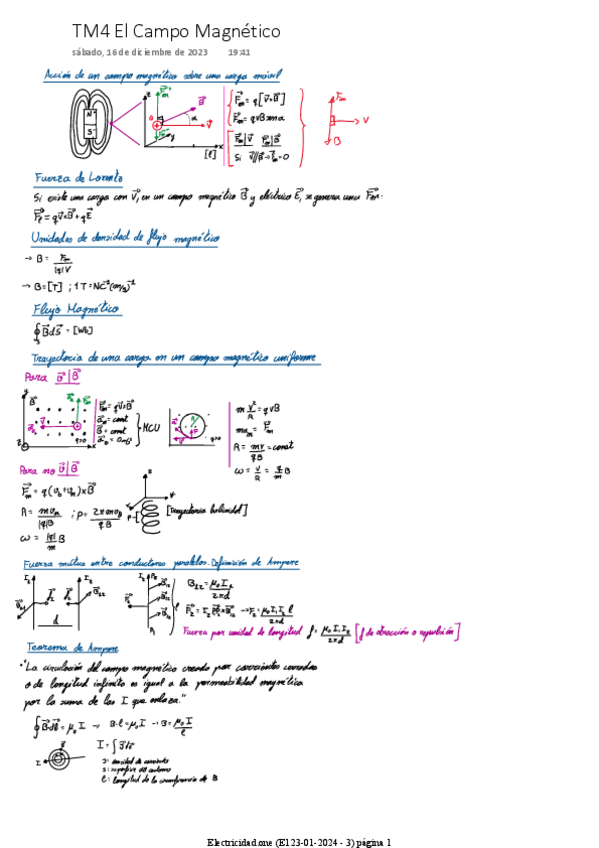 TM4 El Campo Magnético
sábado, 16 de diciembre de 2023 19:41
Acción de un campo magnético sobre una carga móvil
N
S
z
F⃗m
B⃗
α
V⃗
x
[E]
F⃗m = q[V⃗×B⃗]
Fm = qVB senα
F⃗m|V⃗ F⃗m|B⃗
Si V⃗//B⃗→Fm=0
Fm
V
B
Fuerza de Lorentz
Si existe una carga con V⃗, en un campo magnético B⃗ y eléctrico E⃗, se genera una F⃗m.
F⃗L = qV⃗×B⃗ + qE⃗
Unidades de densidad de flujo magnético
→ B = Fm / |q|V
→ B=[T] ; 1T = NC⁻¹(m/s)⁻¹
Flujo Magnético
∮B⃗ds⃗ = [Wb]
Trayectoria de una carga en un campo magnético uniforme
Para v⃗|B⃗
F⃗m = qV⃗×B⃗
B = const
} MCU
q>0
m V²/R = qVB
R = mV/qB = const
ω = V/R = q/m B
Para no v⃗|B⃗
R = mvn / |q|B
ω = |q|/m B
P
[Trayectoria helicoidal]
Fuerza mútua entre conductores paralelos. Definición de Ampere
I1 I2
d
B12 = μ0 I1 / 2πd
→F2 = μ0 I1 I2 / 2πd ℓ
Fuerza por unidad de longitud f = μ0 I1 I2 / 2πd [f de atracción o repulsión]
Teorema de Ampere
·"La circulación del campo magnético creado por corrientes cerradas
o de longitud infinito es igual a la permeabilidad magnética
por la suma de las I que enlaza."
∮B⃗dℓ⃗ = μ0 I → B·ℓ = μ0 I → B = μ0 I / ℓ
I = ∫J⃗ds⃗
J: densidad de corriente
S: superficie del contorno
ℓ: longitud de la circunferencia de B
Electricidad.one (E123-01-2024 - 3) página 1